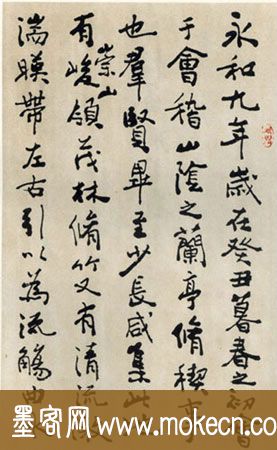 永和九年歲在癸丑暮春之初會
于會稽山陰之蘭亭脩稧事
也羣賢畢至少長咸集此
有崇山峻領茂林脩竹又有清流激
湍暎帶左右引以為流觴曲
墨客网 www.mokecn.c